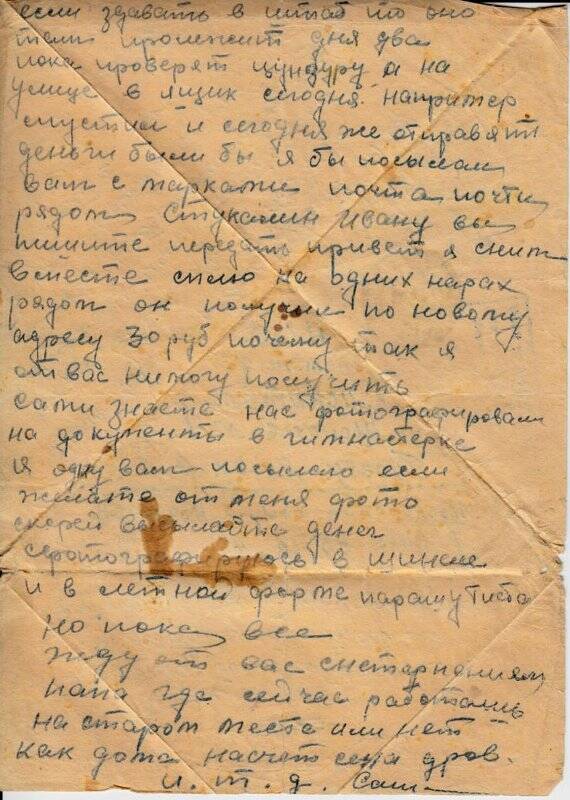 если здавать в штаб то оно
там пролежит дня два
пока проверят цундуру а на
улице в ящик сегодня например
спустил и сегодня же отправят
деньги были бы я бы посылал
вам с марками почта почти
рядом Стукалин Ивану вы
пишите передать привет я сним
вместе сплю на одних нарах
рядом он получил по новому
адресу 30 руб почему так я
от вас нимогу получить
сами знаете нас фотографировали
на документы в гимнастерке
я одну вам посылаю если
желате от меня фото
скорей высылайте денег
сфотографируюсь в шинеле
и в летной форме парашутиста
но пока все
жду от вас снетерпением
папа где сейчас работаешь
на старом месте или нет
как дома насчет сена дров.
и. т. д. Саш